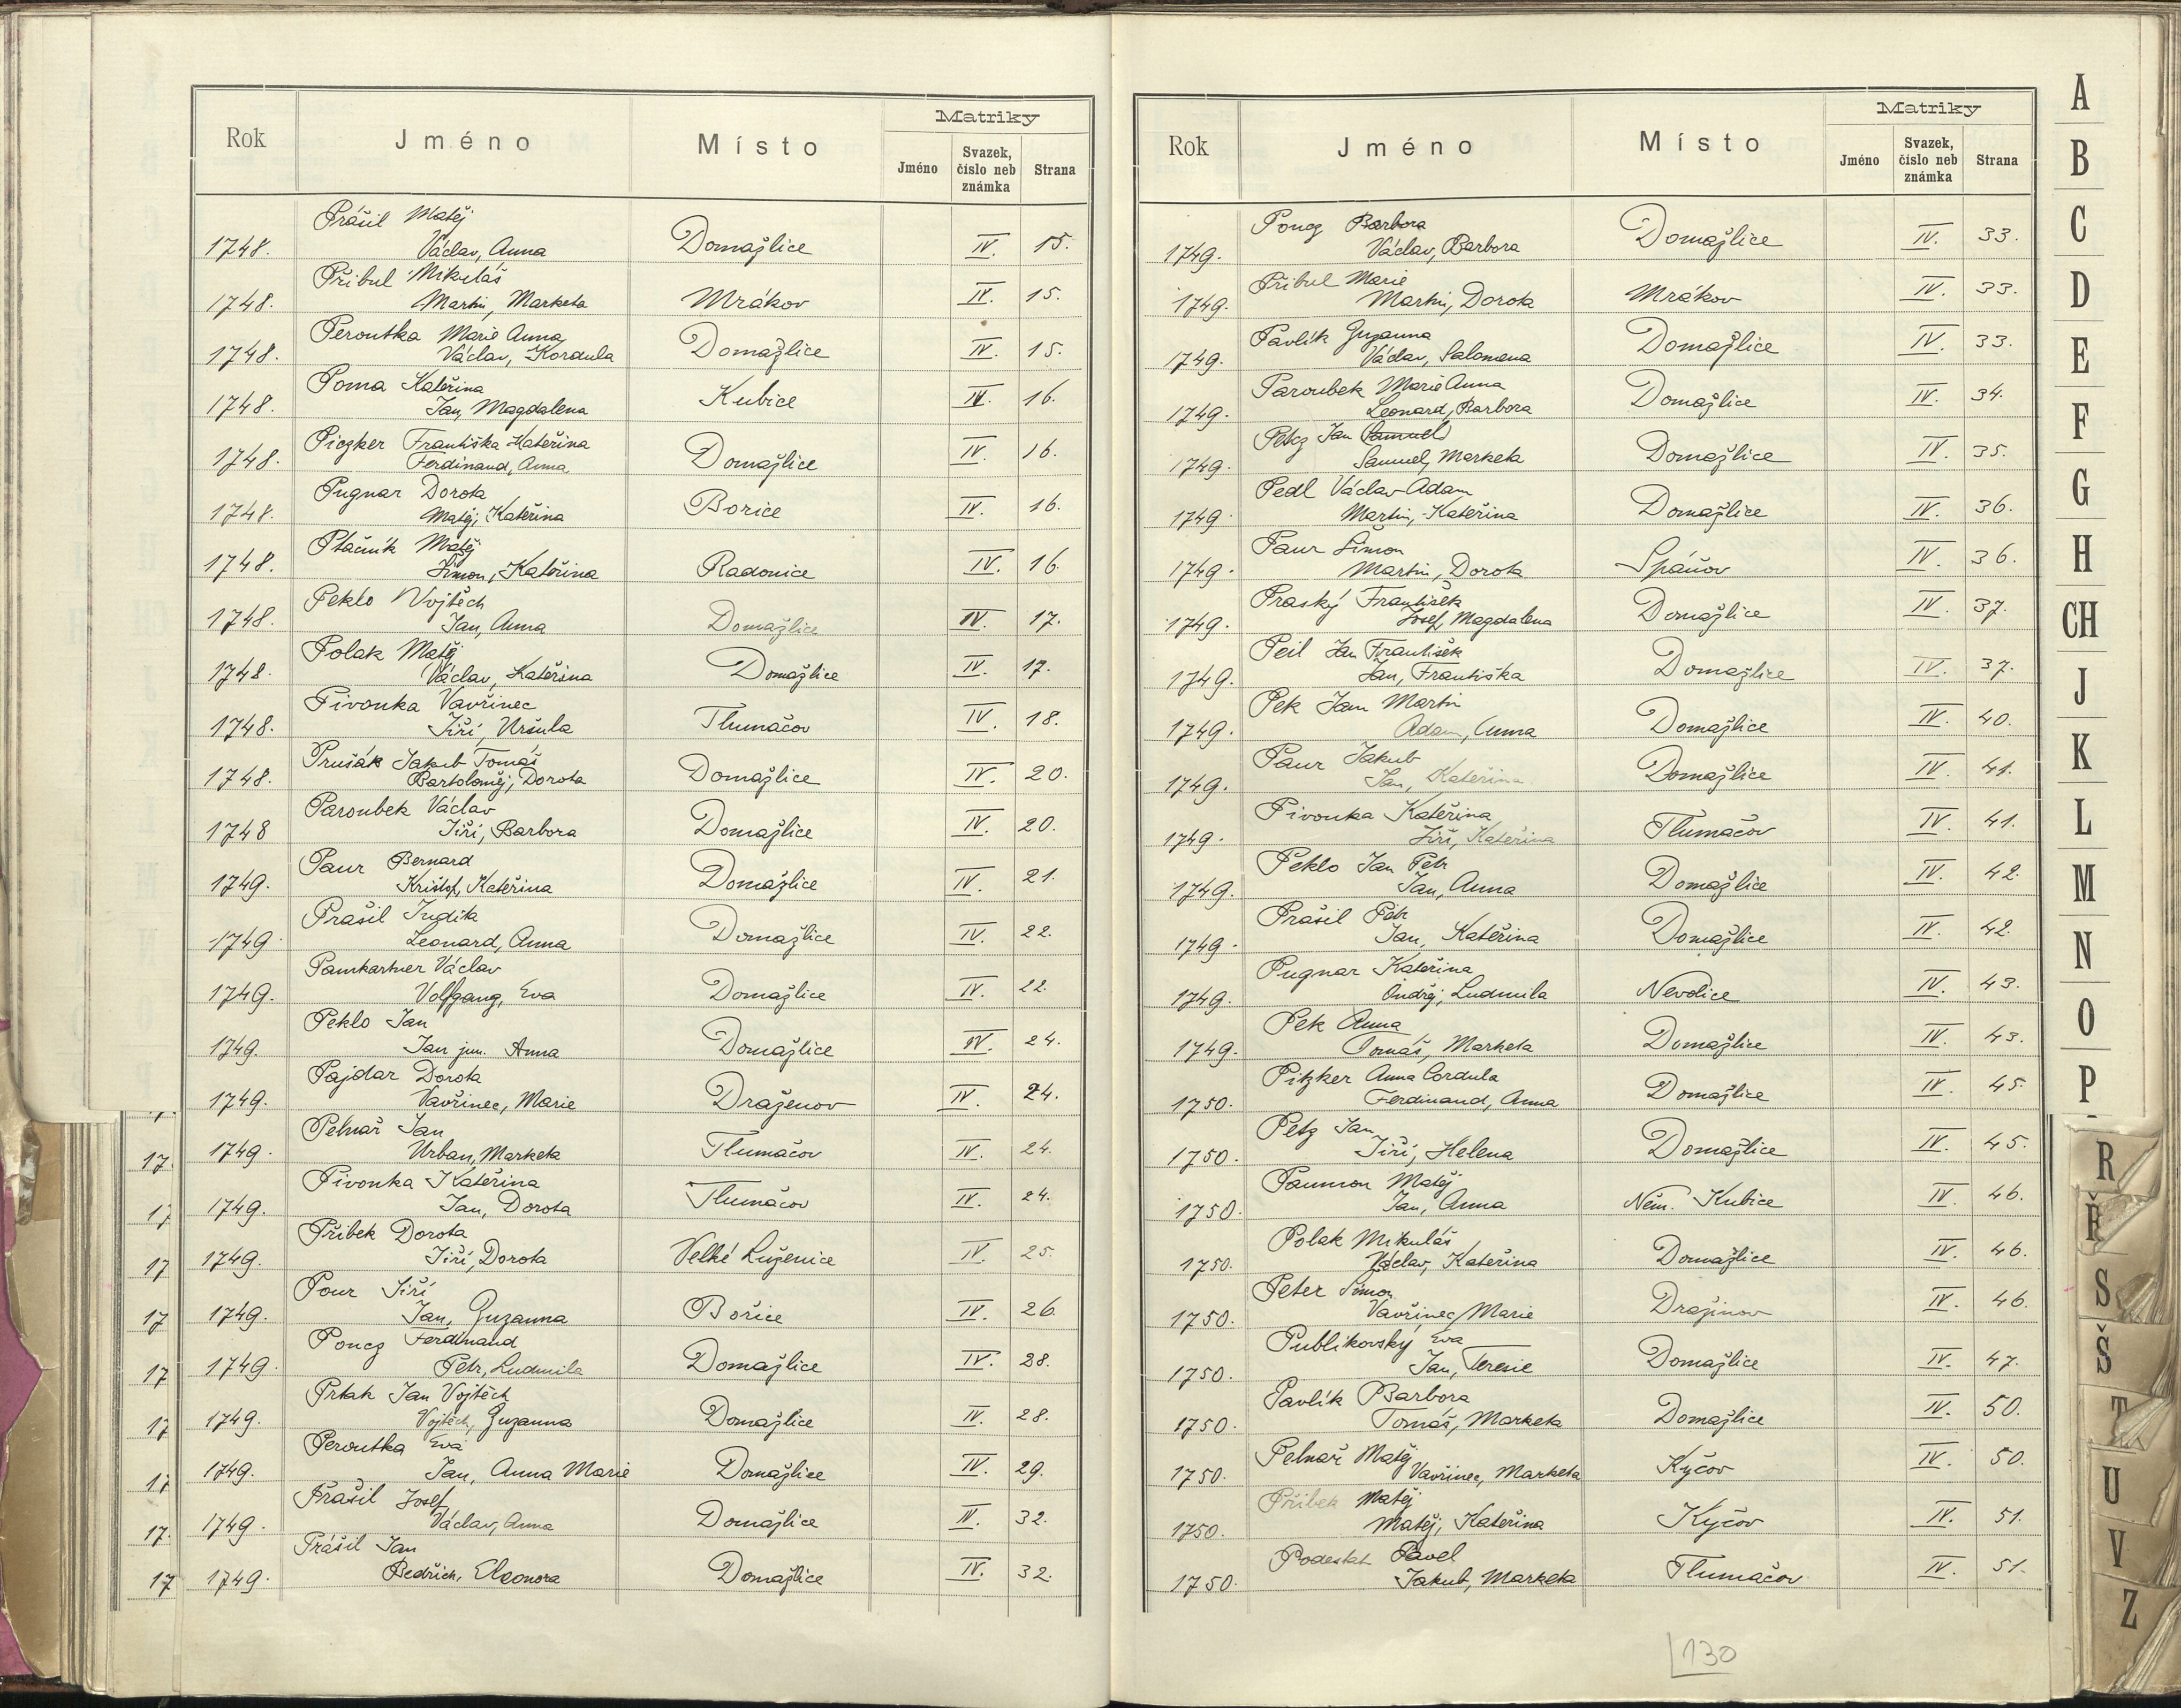 Matriky
Rok Jméno Místo Jméno Svazek, číslo neb známka Strana
Prášil Matěj
1748. Václav, Anna Domažlice IV. 15.
Přibul Mikuláš
1748. Martin, Marketa Mrákov IV. 15.
Peroutka Marie Anna
1748. Václav, Kordula Domažlice IV. 15.
Poma Kateřina
1748. Jan, Magdalena Kubice IV. 16.
Piczker Františka Kateřina
1748. Ferdinand, Anna Domažlice IV. 16.
Pugnar Dorota
1748. Matěj, Kateřina Borice IV. 16.
Ptáčník Matěj
1748. Šimon, Kateřina Radonice IV. 16.
Peklo Vojtěch
1748. Jan, Anna Domažlice IV. 17.
Polak Matěj
1748. Václav, Kateřina Domažlice IV. 17.
Pivonka Vavřinec
1748. Jiří, Uršula Tlumačov IV. 18.
Prušák Jakub Tomáš
1748. Bartoloměj, Dorota Domažlice IV. 20.
Paroubek Václav
1748 Jiří, Barbora Domažlice IV. 20.
Paur Bernard
1749. Krištof, Kateřina Domažlice IV. 21.
Prašil Judita
1749. Leonard, Anna Domažlice IV. 22.
Paumkartner Václav
1749. Volfgang, Eva Domažlice IV. 22.
Peklo Jan
1749. Jan jun. Anna Domažlice IV. 24.
Pajdar Dorota
1749. Vavřinec, Marie Draženov IV. 24.
Pelnař Jan
17. 1749. Urban, Marketa Tlumačov IV. 24.
Pivonka Kateřina
17 1749. Jan, Dorota Tlumačov IV. 24.
Přibek Dorota
17 1749. Jiří, Dorota Velké Luženice IV. 25.
Pour Jiří
17 1749. Jan, Zuzanna Bořice IV. 26.
Poncz Ferdinand
17 1749. Petr, Ludmila Domažlice IV. 28.
Prtak Jan Vojtěch
17 1749. Vojtěch, Zuzanna Domažlice IV. 28.
Peroutka Eva
17 1749. Jan, Anna Marie Domažlice IV. 29.
Prašil Josef
17. 1749. Václav, Anna Domažlice IV. 32.
Prášil Jan
17 1749. Bedřich, Eleonora Domažlice IV. 32.
Matriky
Rok Jméno Místo Jméno Svazek, číslo neb známka Strana
Poncz Barbora
1749. Václav, Barbora Domažlice IV. 33.
Přibul Marie
1749. Martin, Dorota Mrákov IV. 33.
Pavlík Zuzanna
1749. Václav, Salomena Domažlice IV. 33.
Paroubek Marie Anna
1749. Leonard, Barbora Domažlice IV. 34.
Petcz Jan Samuel
1749. Samuel, Marketa Domažlice IV. 35.
Pedl Václav Adam
1749. Martin, Kateřina Domažlice IV. 36.
Paur Šimon
1749. Martin, Dorota Spáňov IV. 36.
Praský František
1749. Josef, Magdalena Domažlice IV. 37.
Peil Jan František
1749. Jan, Františka Domažlice IV. 37.
Pek Jan Martin
1749. Adam, Anna Domažlice IV. 40.
Paur Jakub
1749. Jan, Kateřina Domažlice IV. 41.
Pivonka Kateřina
1749. Jiří, Kateřina Tlumačov IV. 41.
Peklo Jan Petr
1749. Jan, Anna Domažlice IV. 42.
Prášil Petr
1749. Jan, Kateřina Domažlice IV. 42.
Pugnar Kateřina
1749. Ondřej, Ludmila Nevolice IV. 43.
Pek Anna
1749. Tomáš, Marketa Domažlice IV. 43.
Pitzker Anna Cordula
1750. Ferdinand, Anna Domažlice IV. 45.
Petz Jan
1750. Jiří, Helena Domažlice IV. 45.
Paumon Matěj
1750. Jan, Anna Něm. Kubice IV. 46.
Polak Mikuláš
1750. Václav, Kateřina Domažlice IV. 46.
Peter Šimon
1750. Vavřinec, Marie Dražinov IV. 46.
Publikovský Eva
1750. Jan, Terezie Domažlice IV. 47.
Pavlík Barbora
1750. Tomáš, Marketa Domažlice IV. 50.
Pelnař Matěj
1750. Vavřinec, Marketa Kyčov IV. 50.
Přibek Matěj
1750. Matěj, Kateřina Kyčov IV. 51.
Podestat Pavel
1750. Jakub, Marketa Tlumačov IV. 51.
130
A
B
C
D
E
F
G
H
CH
J
K
L
M
N
O
P
R
Ř
S
Š
T
U
V
Z